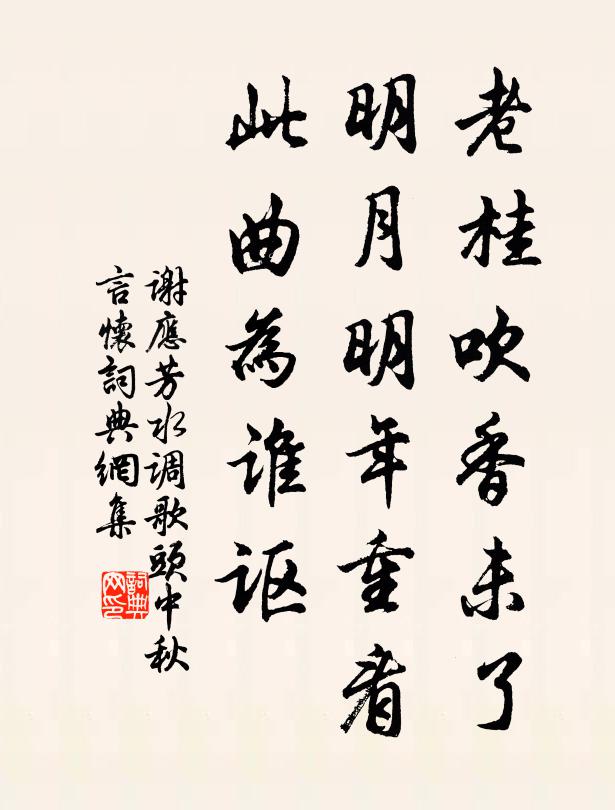 老桂吹香未了
明月明年重看
此曲為誰讴
谢應芳水调歌頭中秋
言懷詞典網集
詞典网印